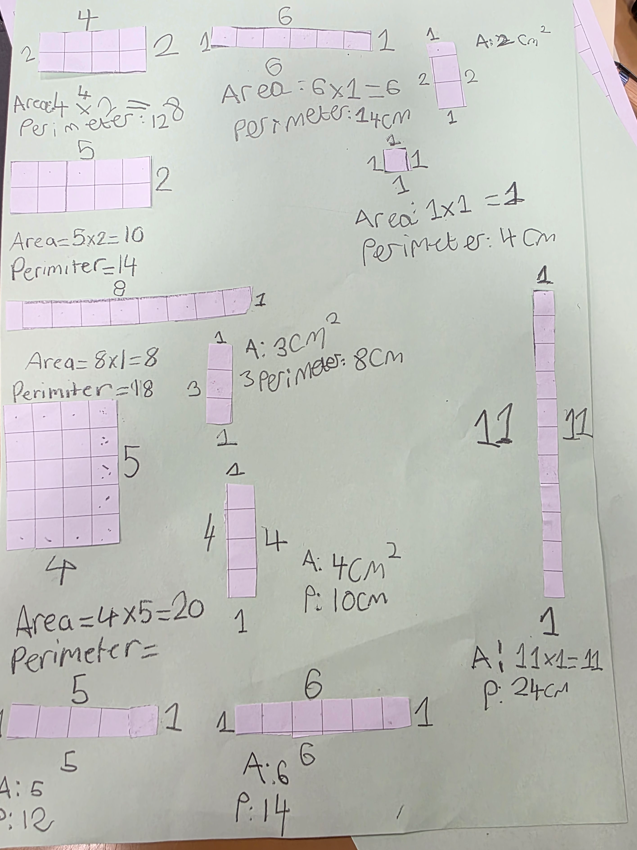 4
2 2
4
Area:4 × 2 = 8
Perimeter:12
6
1 1
6
Area:6x1=6
Perimeter:14cm
1
A:2cm²
2 2
1
5
2
Area=5x2=10
Perimiter=14
1
1 1
1
Area:1x1=1
Perimeter:4cm
8
1
Area=8x1=8
Perimiter=18
1
A:3cm²
3 3
Perimeter:8cm
1
1
11 11
1
A:11x1=11
P:24cm
5
4
Area=4x5=20
Perimeter=
1
4 4
1
A:4cm²
P:10cm
5
1 1
5
A:5
P:12
6
1 1
6
A:6
P:14